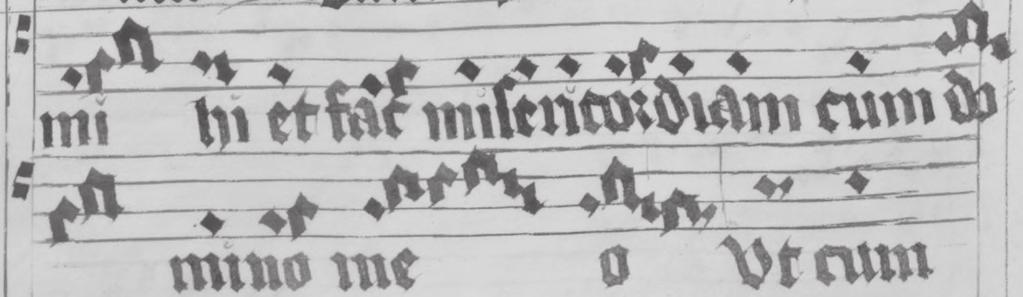 mi hi et fac misericordiam cum do
mino me o Vt cum